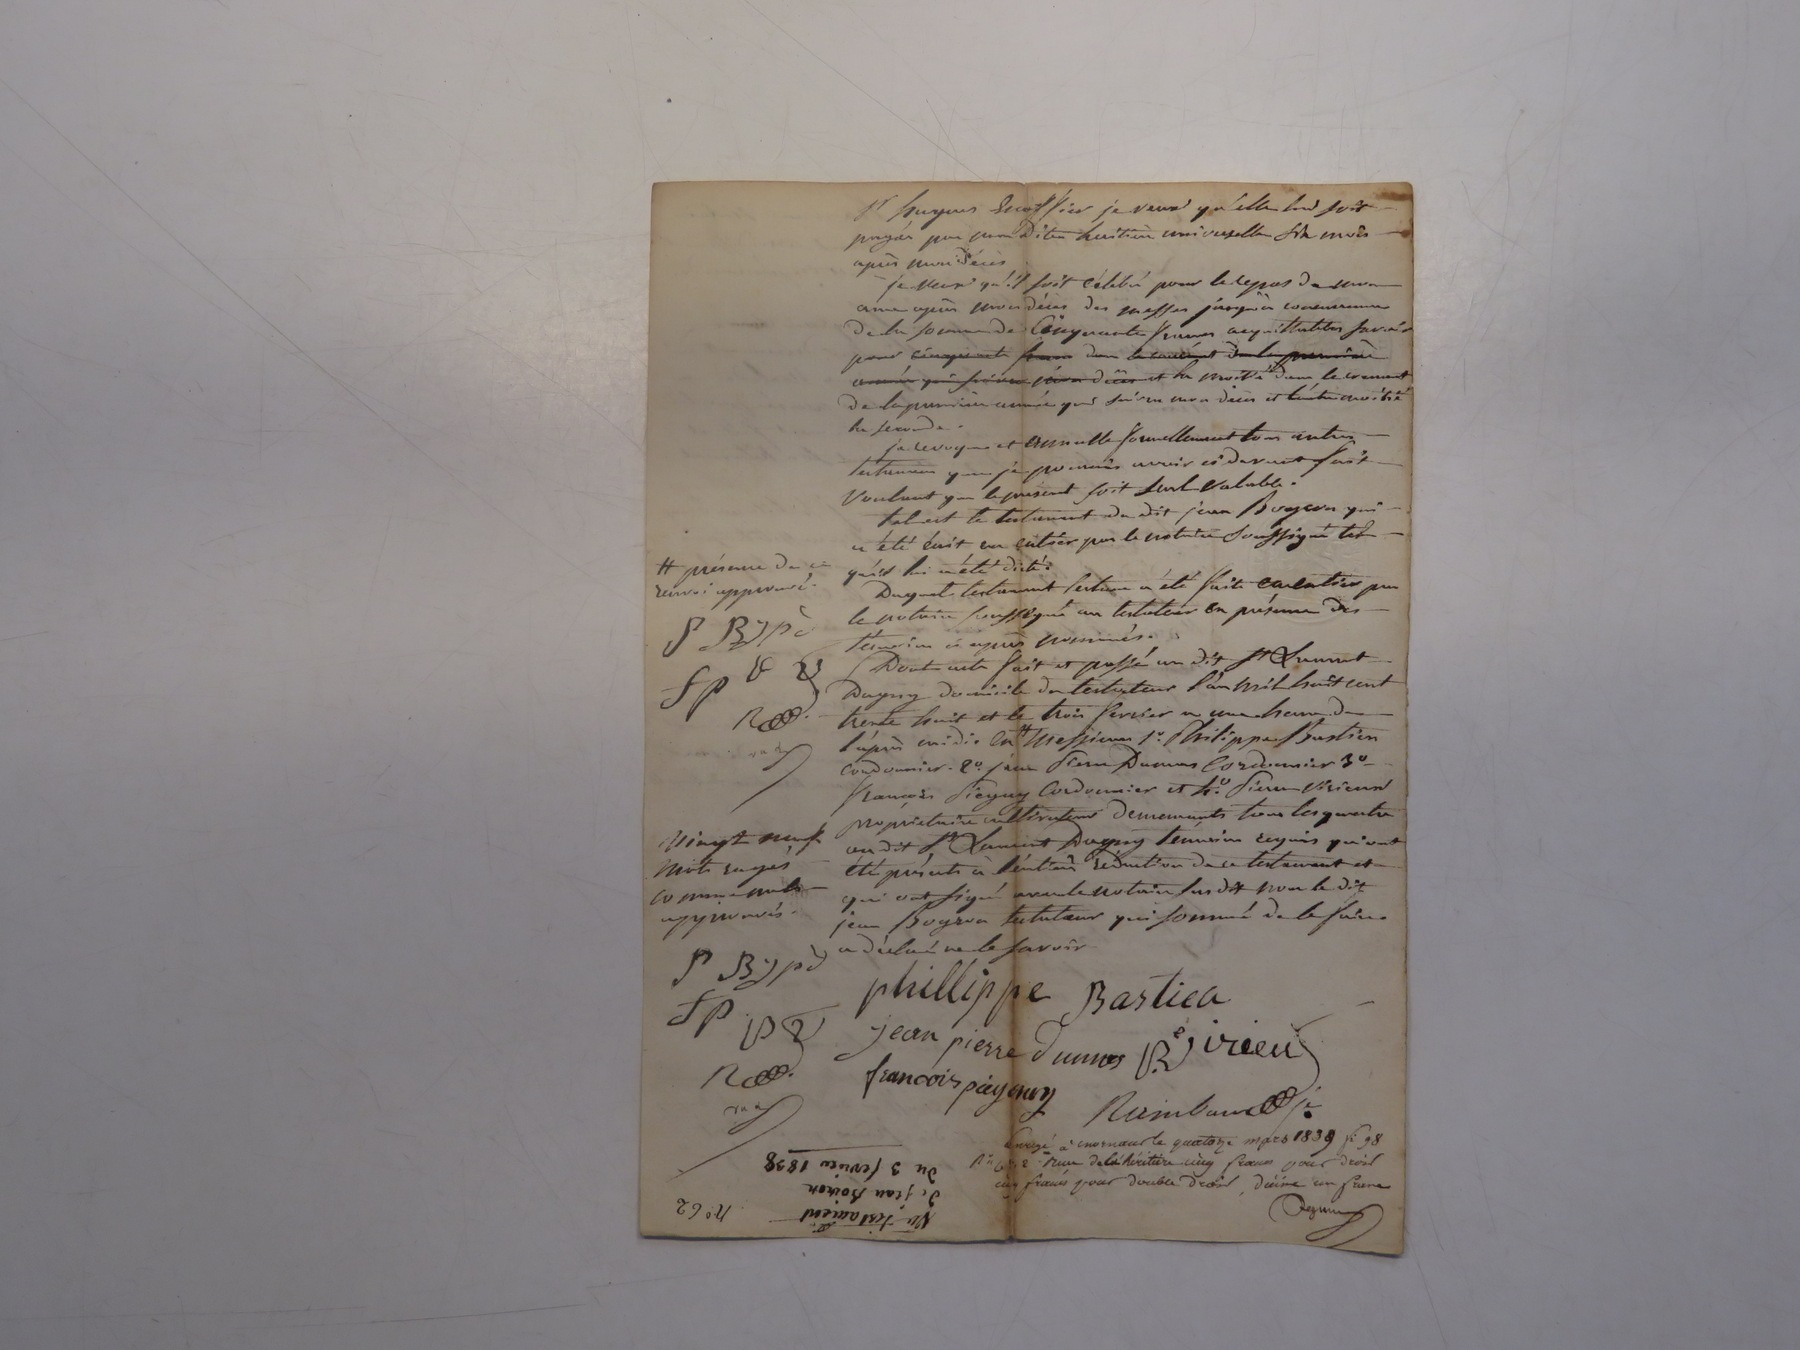 Sr hugues je veux qu'elle lui soit
payée par ma dite heritière universelle six mois
après mon décès
je veux qu'il soit célébré pour le repos de mon
ame après mon décès des messes jusqu'à concurrence
de la somme de Cinquante francs acquittables savoir
pour cinquante francs dans le courant de la première
année qui suivra mon décès et la moitié dans le courant
de la première année qui suivra mon décès et l'autre moitié
la seconde.
je revoque et annulle formellement tous autres
testamens que je pourrais avoir ci devant fait
Voulant que le présent soit seul valable.
tel est le testament du dit jean Boyron qui
a été écrit en entier par le notaire soussigné tel
qu'il lui a été dicté.
Duquel testament lecture a été faite en entier par
le notaire soussigné au testateur en présence des
témoins ci après nommés.
Dont acte fait et passé au dit St Laurent
Dagny domicile du testateur l'an mil huit cent
trente huit et le trois fevrier a une heure de
l'après midi. En # Messieurs 1º. Philippe Bastien
Cordonnier. 2º. jean Pierre Dumas Cordonnier 3º
françois Piegny Cordonnier et 4º. Pierre Virieux
propriétaire cultivateur demeurants tous les quatre
au dit St Laurent Dagny témoins requis qui ont
été présents à l'entière rédaction de ce testament et
qui ont signé avec le notaire sus dit non le dit
jean Boyron testateur qui sommé de le faire
a déclaré ne le savoir
# présence de ce
renvoi approuvé.
P B jpd
fp
Vingt neuf
mots rayés
comme nuls
approuvés.
P B jpd
fp
phillippe Bastien
jean pierre dumas Pe Virieu
francois piegny
Rambaud
Enregé à mornant le quatorze mars 1838 fº 98
Reçu cinq francs pour droit
cinq francs pour double droit, décime un franc
Nº 62
testament
de jean Boiron
du 3 fevrier 1838